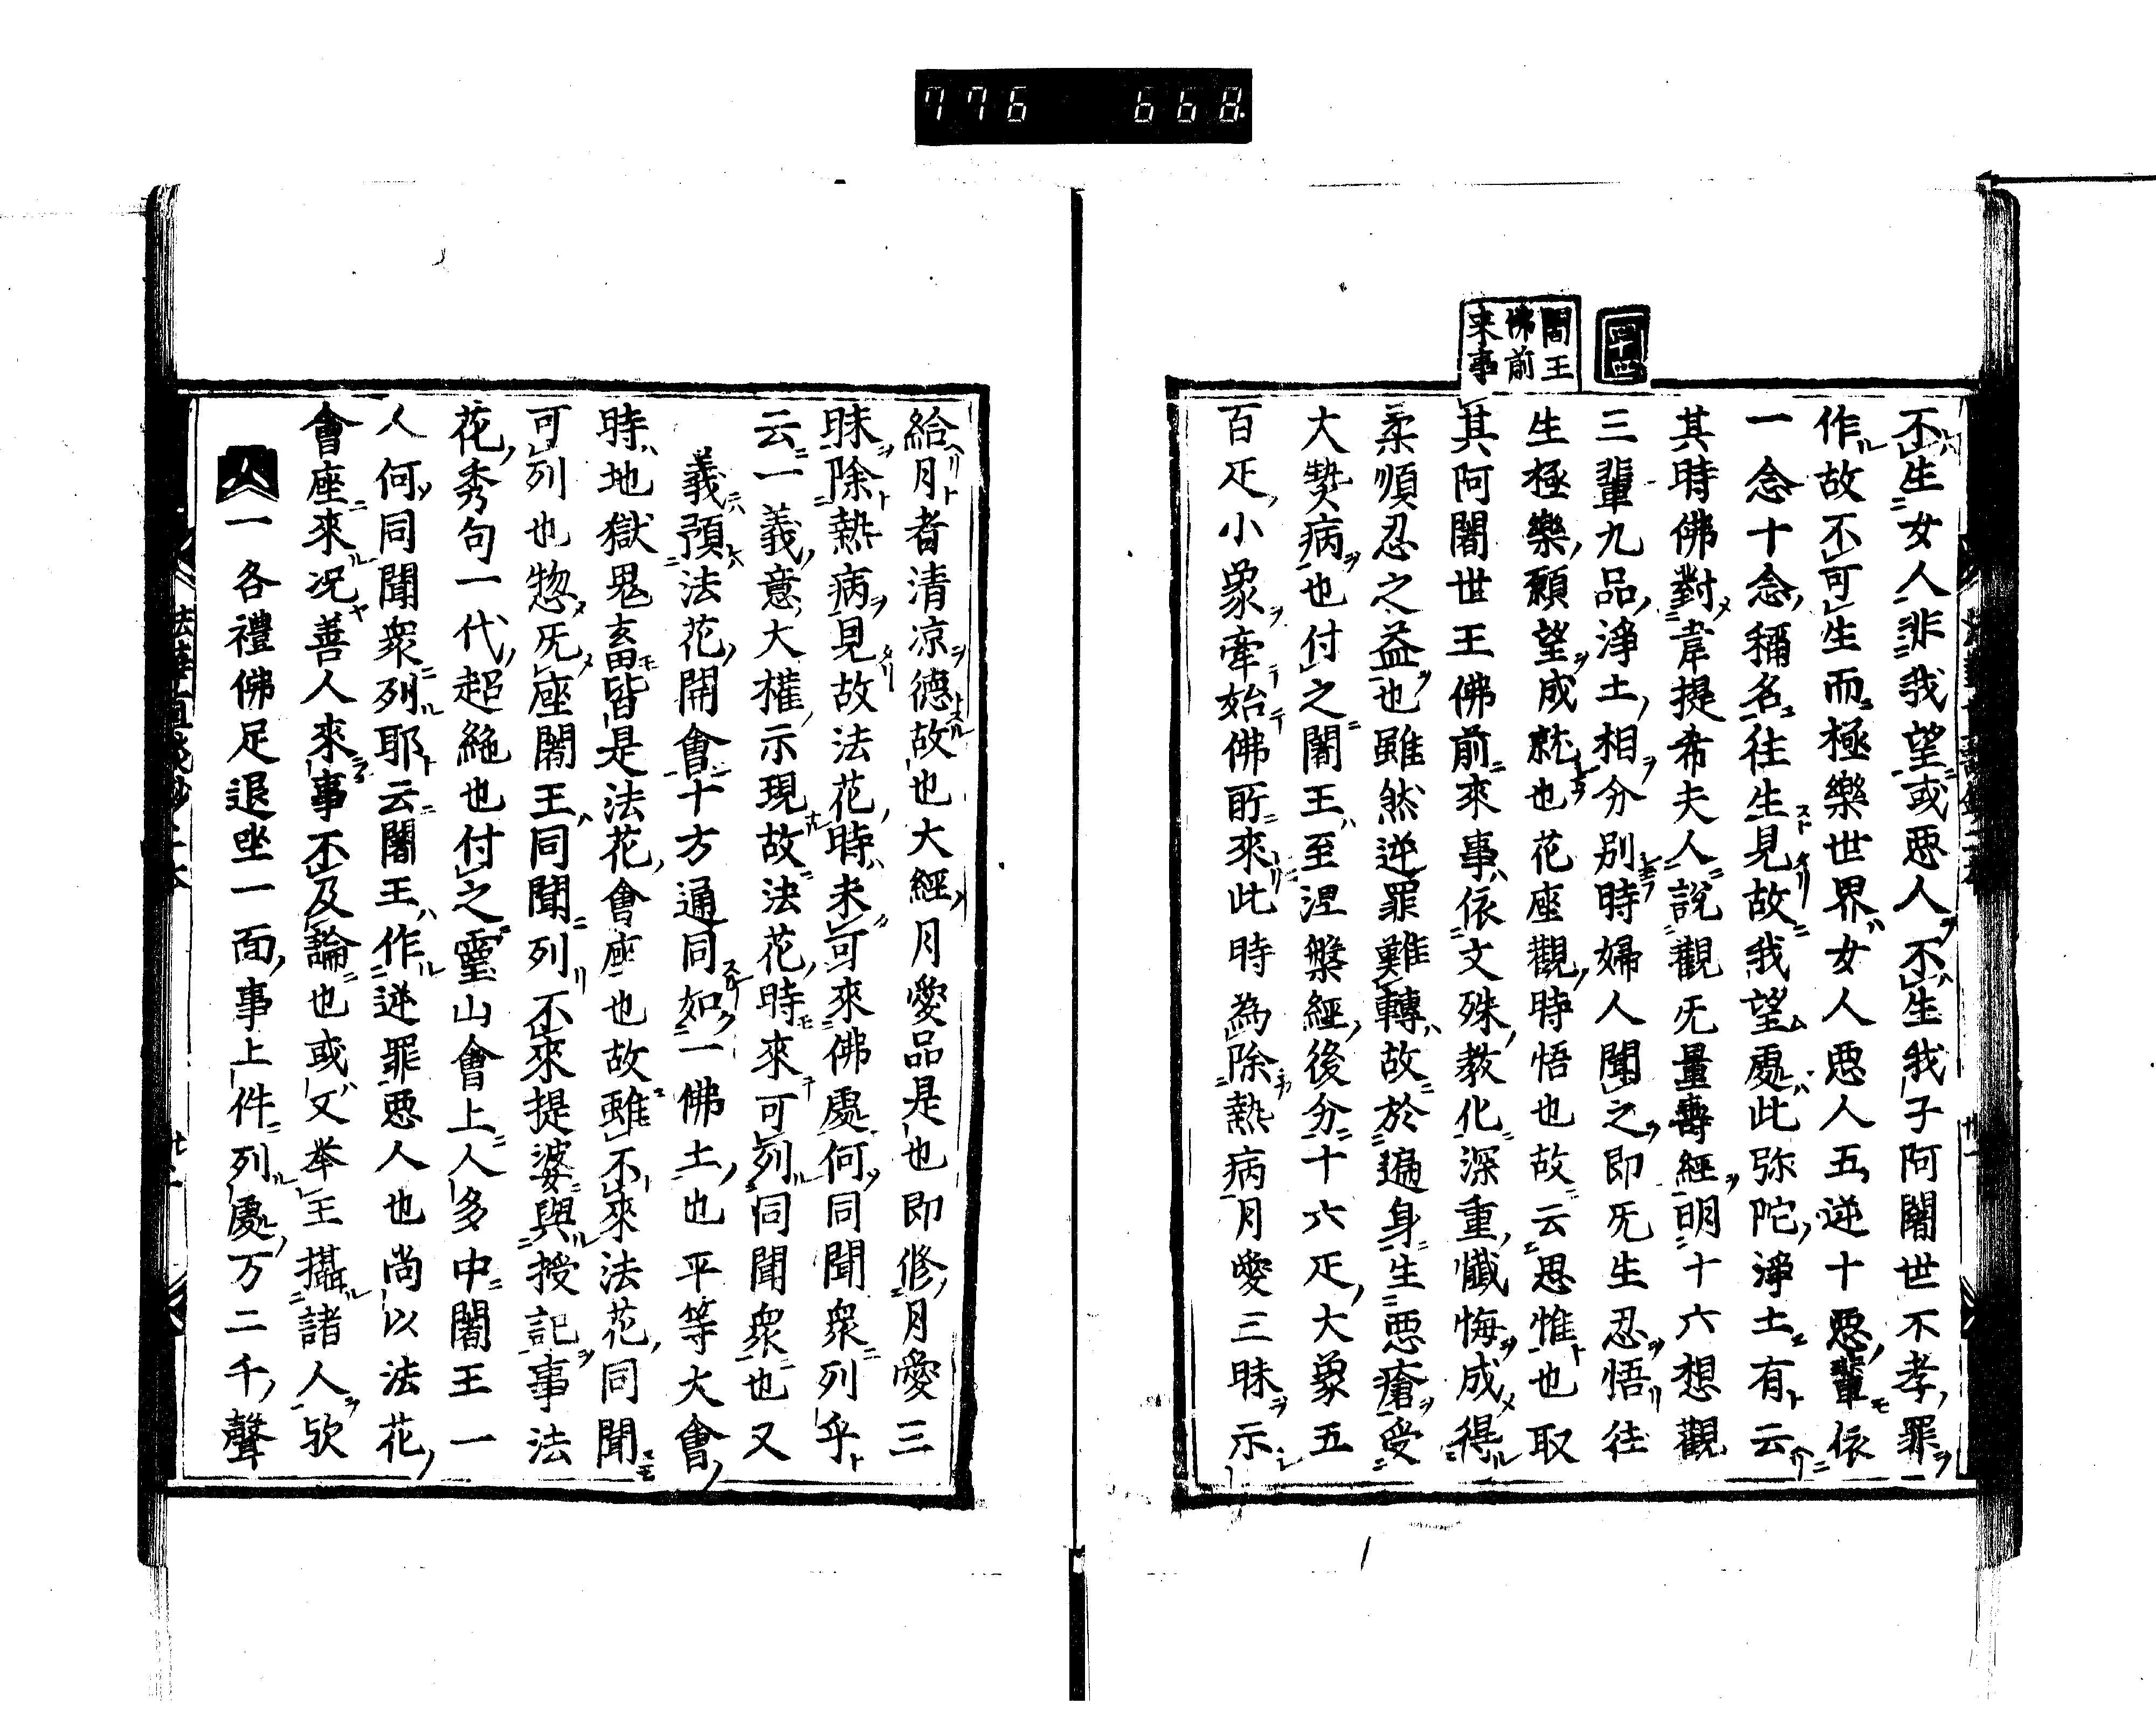 776 668.
四十四
闍王
佛前
来事
不生女人非我望或悪人不生我子阿闍世不孝罪
作故不可生而極樂世界女人悪人五逆十悪輩依
一念十念稱名往生見故我望處此弥陀淨土有云
其時佛對韋提希夫人說觀无量壽經明十六想觀
三輩九品淨土相分別時婦人聞之即无生忍悟往
生極樂願望成就也花座觀時悟也故云思惟也取
其阿闍世王佛前來事依文殊教化深重懺悔成得
柔順忍之益也雖然逆罪難轉故於遍身生悪瘡受
大贅病也付之闍王至涅槃經後分十六疋大象五
百疋小象牽始佛所來此時為除熱病月愛三昧示
給月者清凉德故也大經月愛品是也即修月愛三
昧除熱病見故法花時未可來佛處何同聞衆列乎
云一義意大權示現故法花時來可列同聞衆也又
義預法花開會十方通同如一佛土也平等大會
時地獄鬼畜皆是法花會座也故雖不來法花同聞
可列也惣无座闍王同聞列不來提婆與授記事法
花秀句一代超絶也付之靈山會上人多中闍王一
人何同聞衆列耶云闍王作逆罪悪人也尚以法花
會座來况善人來事不及論也或又举王攝諸人欤
一各禮佛足退坐一面事上件列處万二千聲